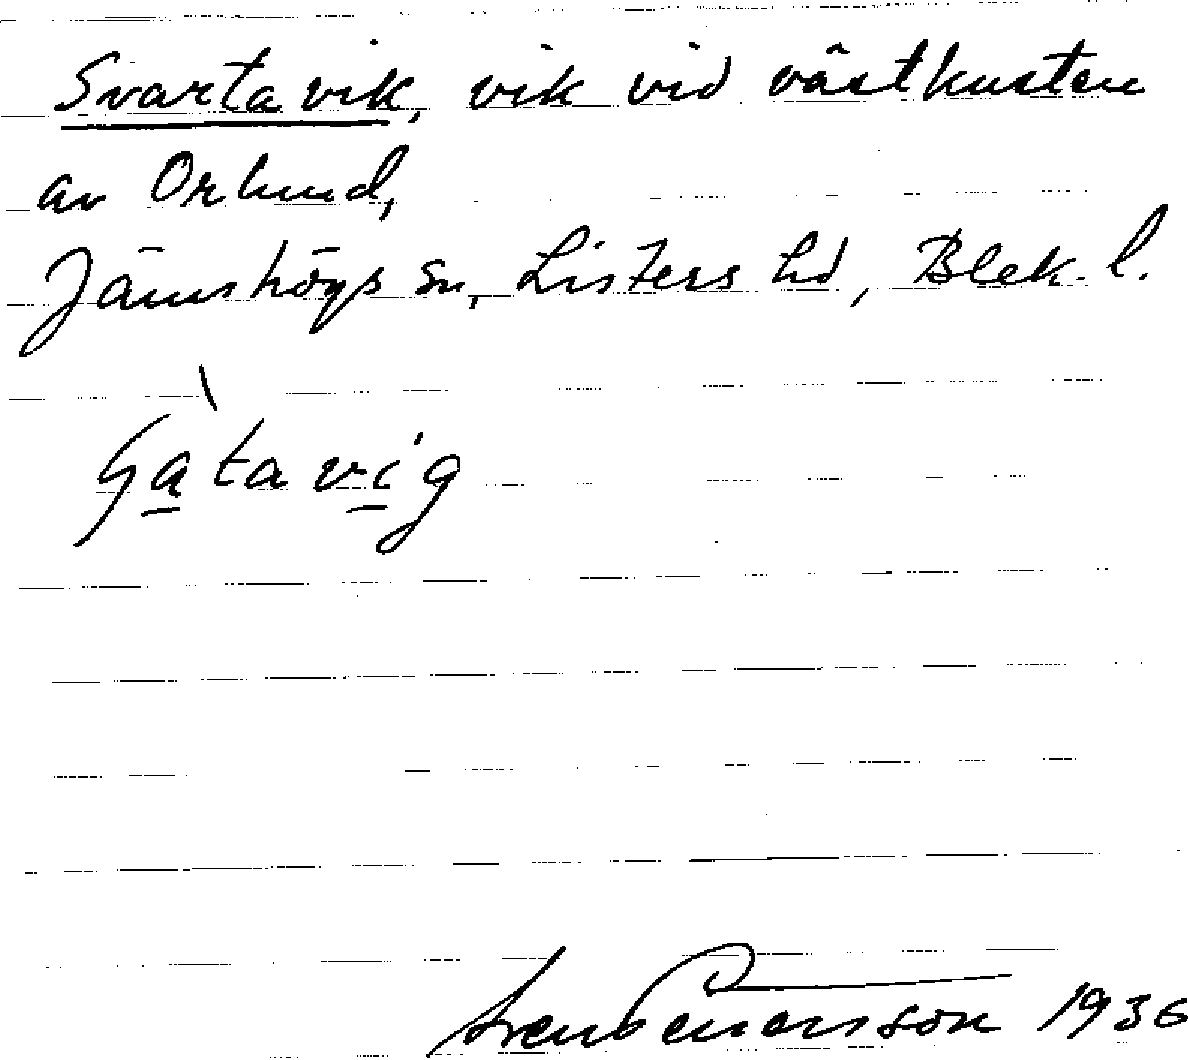 Svarta vik, vik vid västkusten
av Orlund,
Jämshögs sn, Listers hd, Blek. l.
Sven Benersson 1936